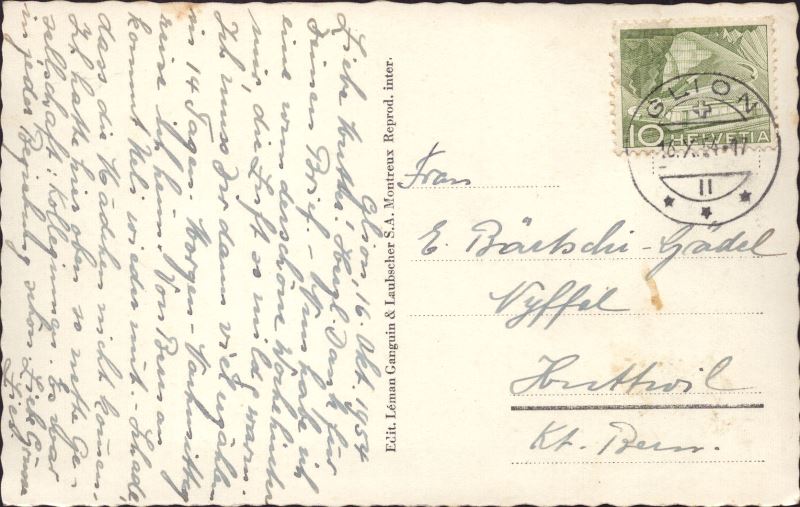 Glion, 16. Okt. 1954
Liebe Mutti! Herzl. Dank für
Deinen Brief. – Nun habe ich
eine wunderschöne Woche hinter
mir, die Luft so mild & warm.
Ich muss Dir dann viel erzählen
in 14 Tagen. Morgen-Nachmittag
reise ich heim. Von Bern an
kommt Nels wieder mit. – Schade,
dass die Mädchen nicht können.
Ich hatte hier oben so nette Ge-
sellschaft, Kolleginnen. Es war
in jeder Beziehung schön. Liebe Grüsse
Edit. Léman Ganguin & Laubscher S.A. Montreux Reprod. inter.
GLION
16.X.54-17
II
10 HELVETIA
Frau
E. Bärtschi-Gädel
Nyffel
Huttwil
Kt. Bern.